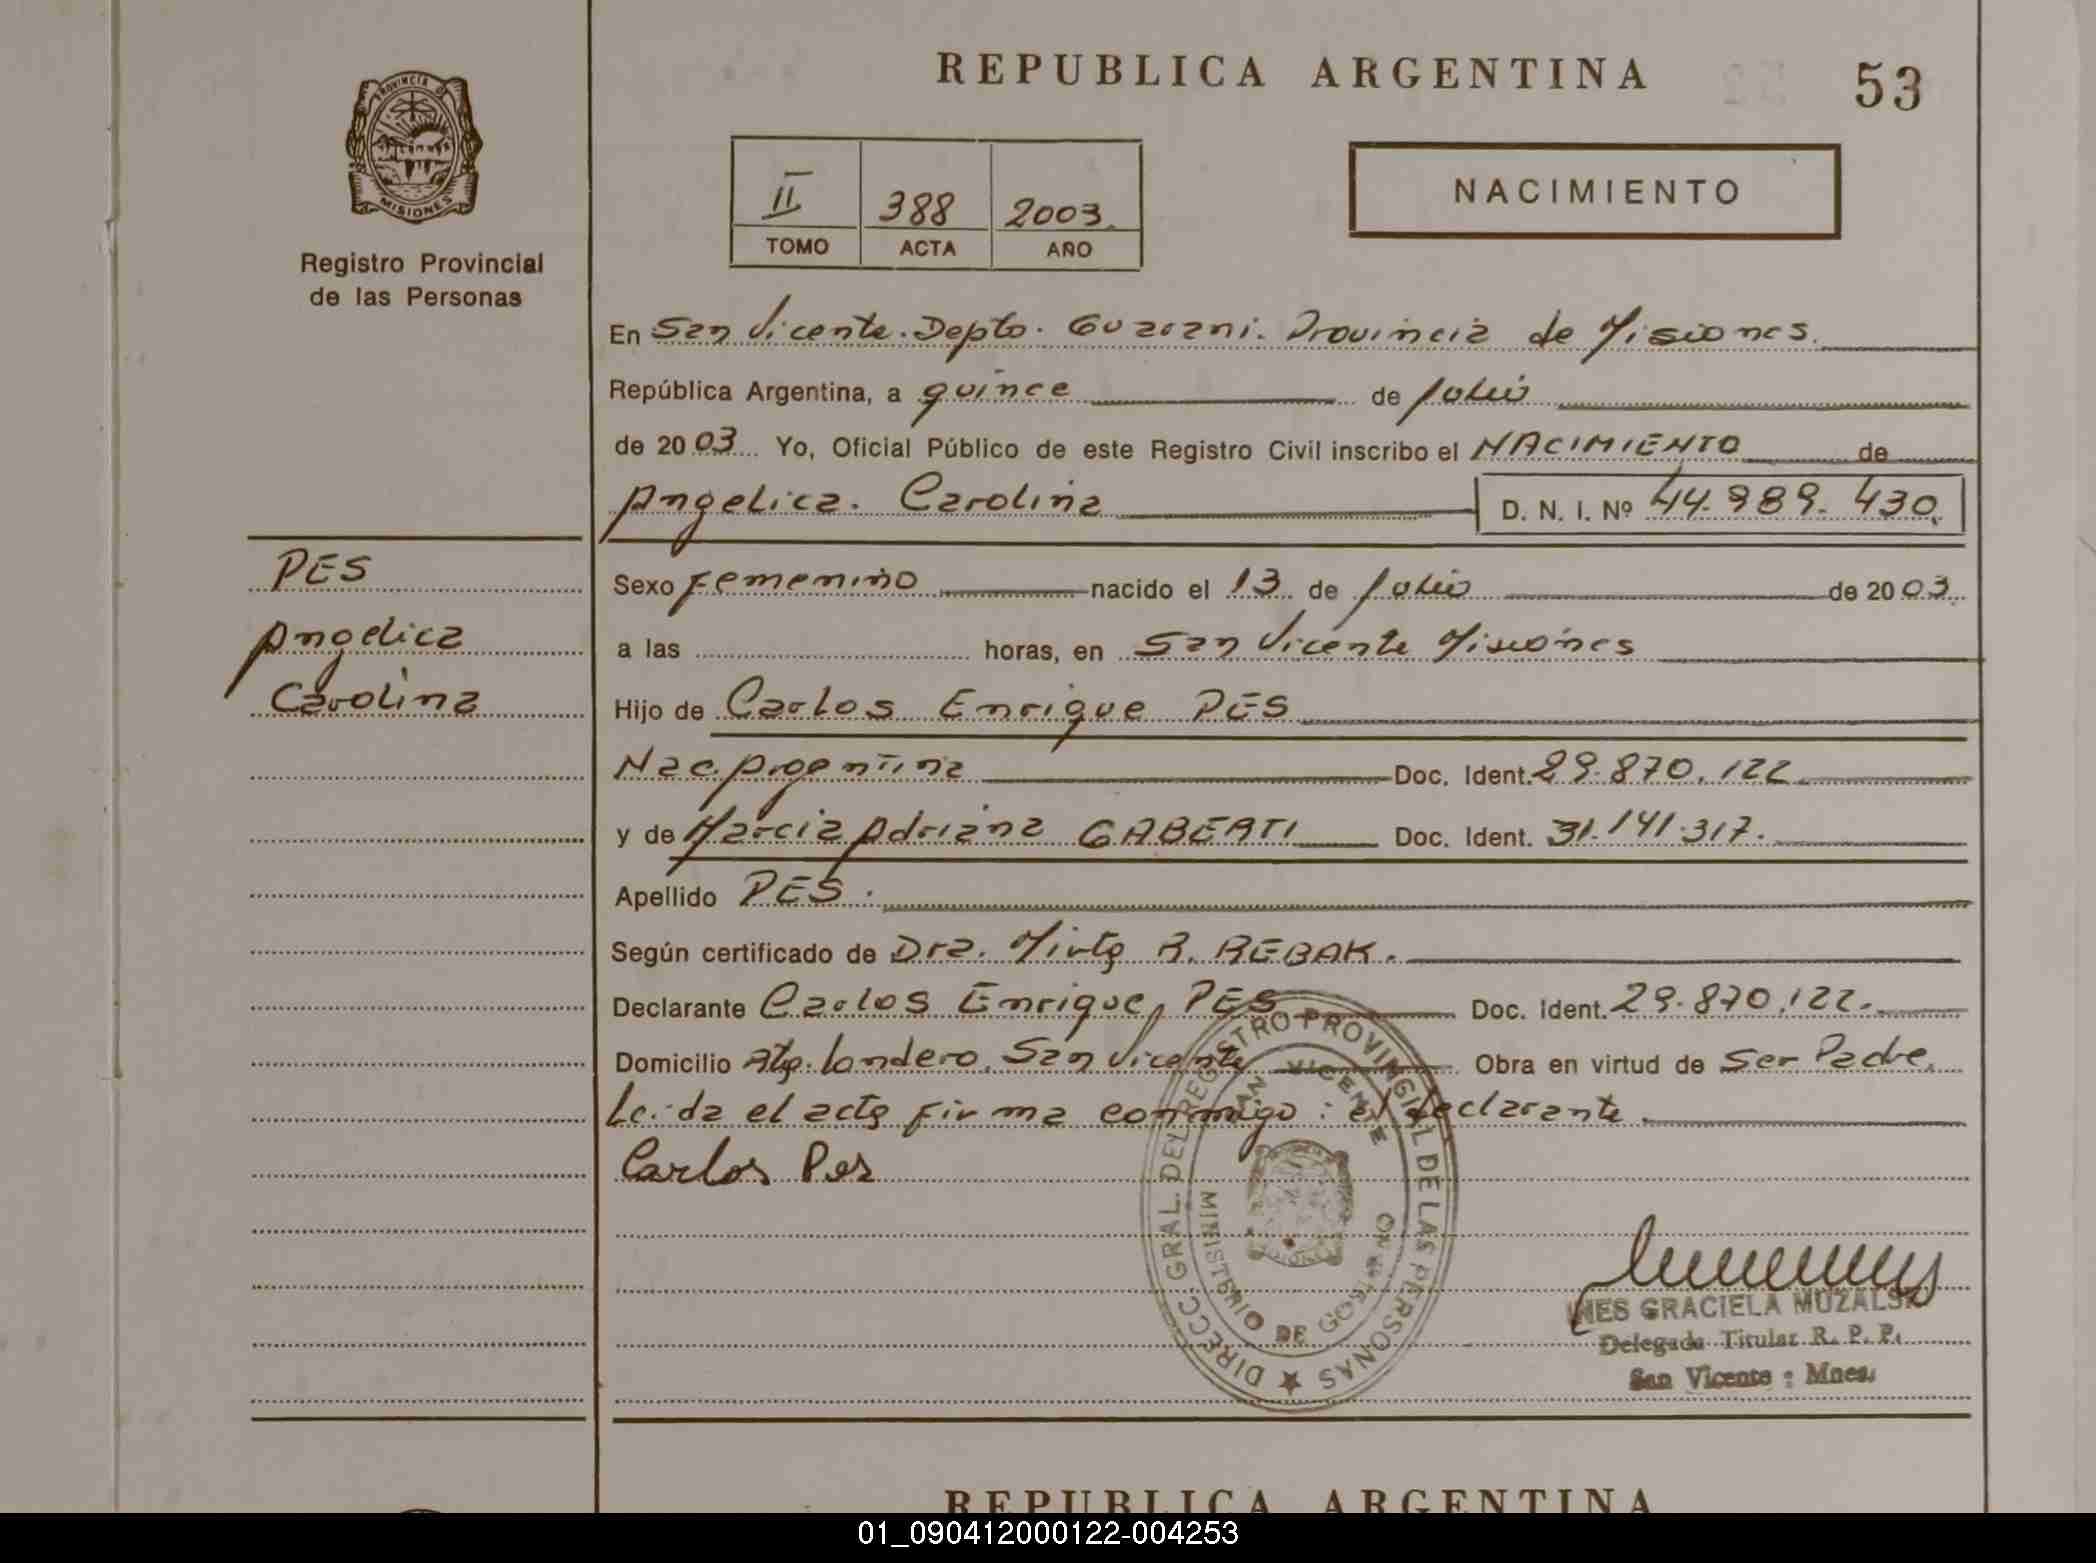 REPUBLICA ARGENTINA
53
PROVINCIA DE MISIONES
Registro Provincial
de las Personas
II 388 2003.
TOMO ACTA AÑO
NACIMIENTO
En San Vicente. Depto. Guarani. Provincia de Misiones.
República Argentina, a quince de Julio
de 2003 Yo, Oficial Público de este Registro Civil inscribo el NACIMIENTO de
Angelica. Carolina D. N. I. Nº 44.989.430.
PES
Angelica
Carolina
Sexo Femenino nacido el 13 de Julio de 2003.
a las horas, en San Vicente Misiones
Hijo de Carlos Enrique PES
Nac. Argentina Doc. Ident. 29.870.122
y de Marcia Adriana GABERTI Doc. Ident. 31.141.317.
Apellido PES.
Según certificado de Dra. Mirta R. REBAK.
Declarante Carlos Enrique PES Doc. Ident. 29.870.122.
Domicilio Londero. San Vicente Obra en virtud de Ser Padre.
Leida el acta firma conmigo: el declarante.
Carlos Pes
DIRECC. GRAL. DEL REGISTRO PROVINCIAL DE LAS PERSONAS
SAN VICENTE
MINISTERIO DE GOBIERNO
INES GRACIELA MUZALSKI
Delegada Titular R. P. P.
San Vicente - Mnes.
REPUBLICA ARGENTINA
01_090412000122-004253